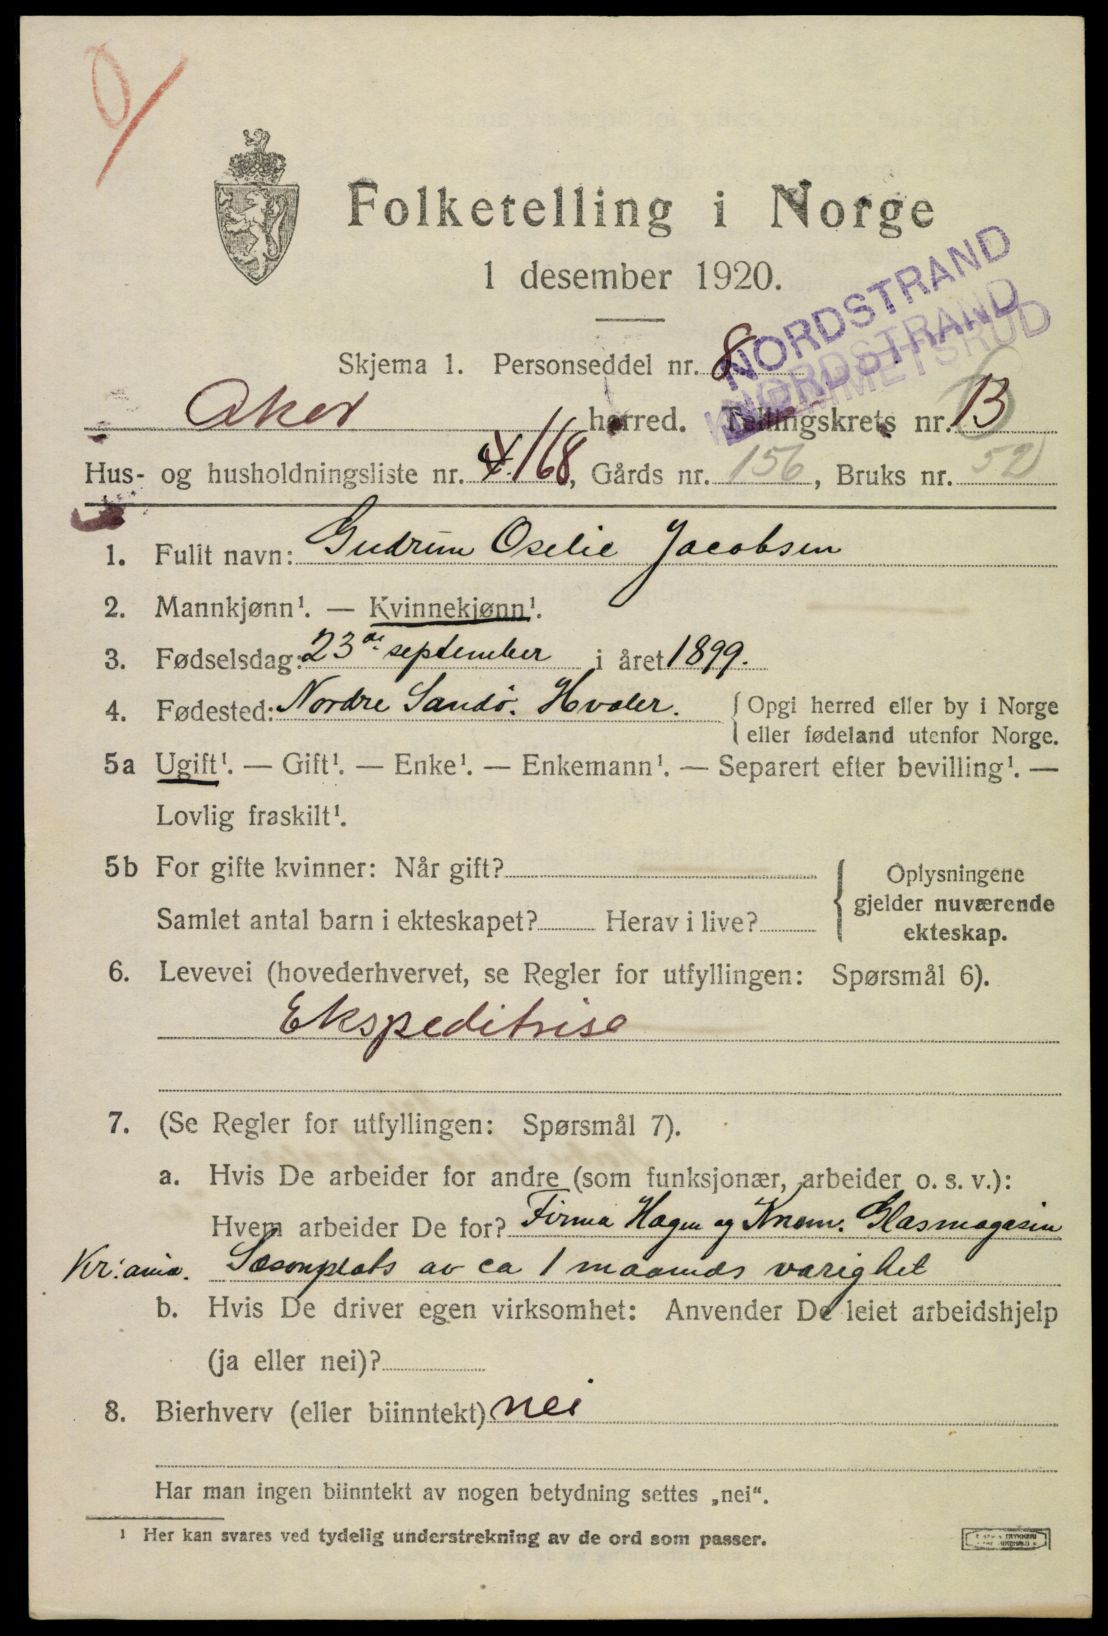 Folketelling i Norge
1 desember 1920.
NORDSTRAND
NORDSTRAND
Skjema 1. Personseddel nr. 8
Aker herred. Tellingskrets nr. 13
Hus- og husholdningsliste nr. 168, Gårds nr. 156, Bruks nr. 52
1. Fullt navn: Gudrun Oselie Jacobsen
2. Mannkjønn¹. — Kvinnekjønn¹.
3. Fødselsdag: 23de september i året 1899.
4. Fødested: Nordre Sandö. Hvaler. { Opgi herred eller by i Norge
eller fødeland utenfor Norge.
5a Ugift¹. — Gift¹. — Enke¹. — Enkemann¹. — Separert efter bevilling¹. —
Lovlig fraskilt¹.
5b For gifte kvinner: Når gift?
Samlet antal barn i ekteskapet? Herav i live?
{ Oplysningene
gjelder nuværende
ekteskap.
6. Levevei (hovederhvervet, se Regler for utfyllingen: Spørsmål 6).
Ekspeditrise
7. (Se Regler for utfyllingen: Spørsmål 7).
a. Hvis De arbeider for andre (som funksjonær, arbeider o. s. v.):
Hvem arbeider De for? Firma Hagen og Knem. Glasmagasin
Kr:ania. Sæsonplats av ca 1 maaneds varighet
b. Hvis De driver egen virksomhet: Anvender De leiet arbeidshjelp
(ja eller nei)?
8. Bierhverv (eller biinntekt) nei
Har man ingen biinntekt av nogen betydning settes „nei“.
¹ Her kan svares ved tydelig understrekning av de ord som passer.